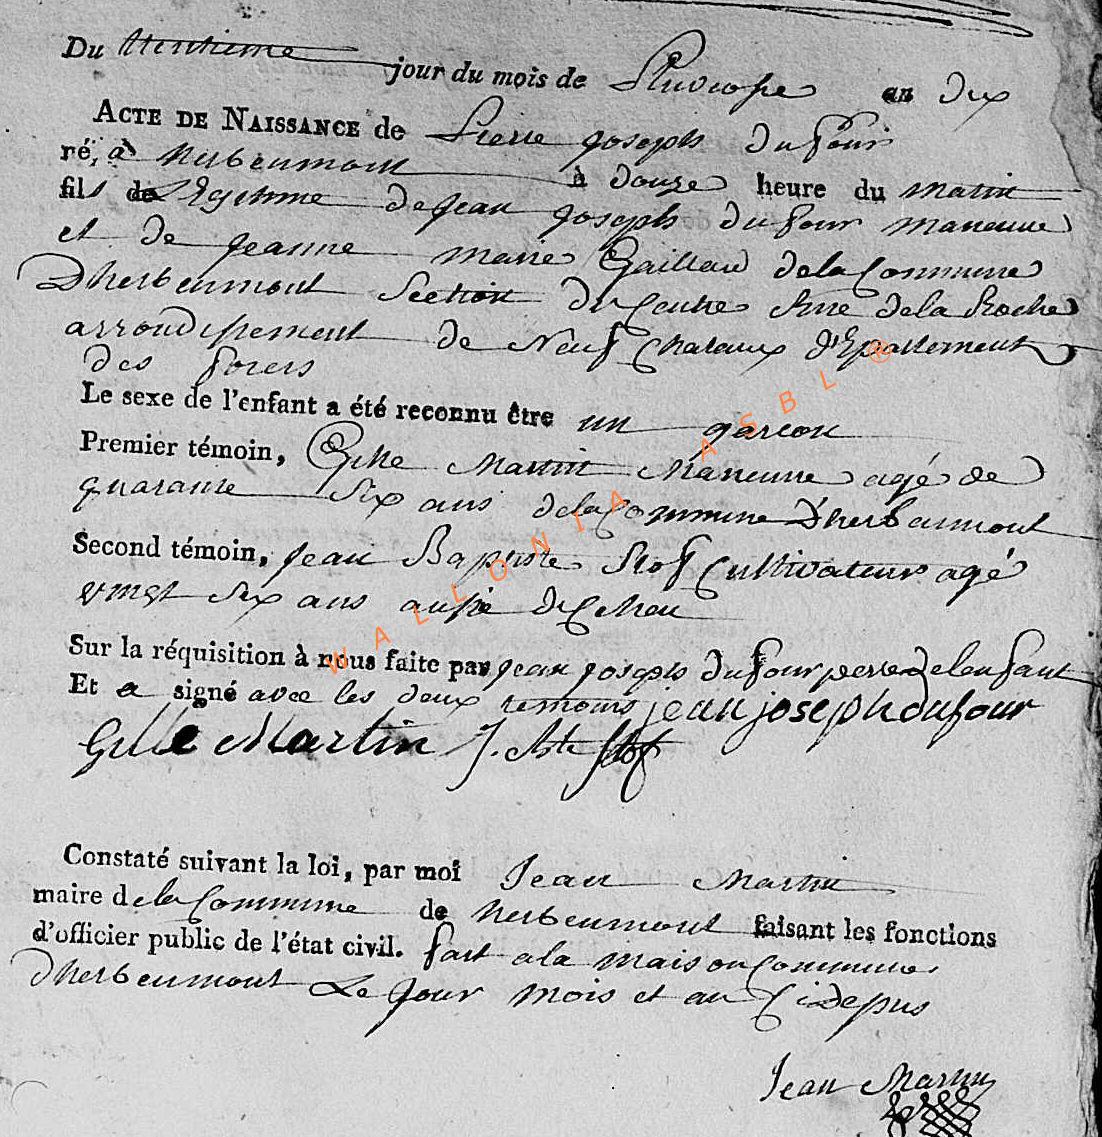 Du trentieme jour du mois de Pluviose an dix
ACTE DE NAISSANCE de Pierre joseph dufour
né, à herbeumont à douze heure du matin
fils de Legitime de jean joseph dufour maneuvre
et de jeanne marie Gaillard de la Commune
Dherbeumont Section du Centre de la Roche
arrondissement de Neuf Chataux d'Epartement
des forets
Le sexe de l'enfant a été reconnu être un garcon
Premier témoin, Gille Martin Maneuvre agé de
quarante six ans de la Commune D'herbeumont
Second témoin, jean Baptiste Stof Cultivateur agé
vingt six ans aussi du
Sur la réquisition à nous faite par jean joseph dufour pere de lenfant
Et a signé avec les deux temoins jean joseph dufour
Gille Martin J. Bte Stof
Constaté suivant la loi, par moi Jean Martin
maire de la Commune de herbeumont faisant les fonctions
d'officier public de l'état civil. fait a la maison Commune
dherbeumont Le jour mois et an
Jean Martin
WALLONIA ASBL ®